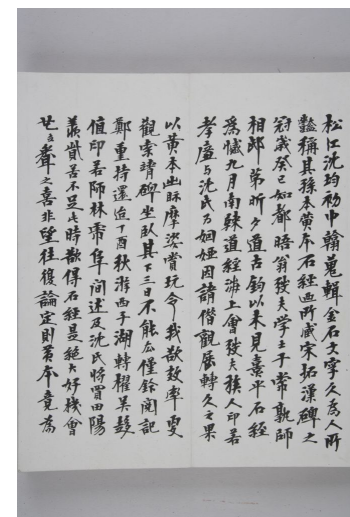 松江沈均初中翰蒐輯金石文字久為人所
豔稱其孫本黄本石經西所臧宋拓漢碑之
冠歲癸巳如都晤翁弢夫學士于常孰師
相邸弟昕夕道古鈞以未見熹平石經
為憾九月南歸道經滬上會弢夫族人印若
孝廉与沈氏乃姻婭因請借觀展轉久之果
以黄本幽眎摩挲賞玩令我欲效率更
觀索靖碑坐臥其下三日不能瓜僅録閱記
鄭重持還迨丁酉秋游西子湖轉櫂吴趨
值印若師林常隼間述及沈氏將買田陽
羨貲苦不足此時歗得石經是絶大好機會
芒立聲之喜非望往復論定則黄本竟為